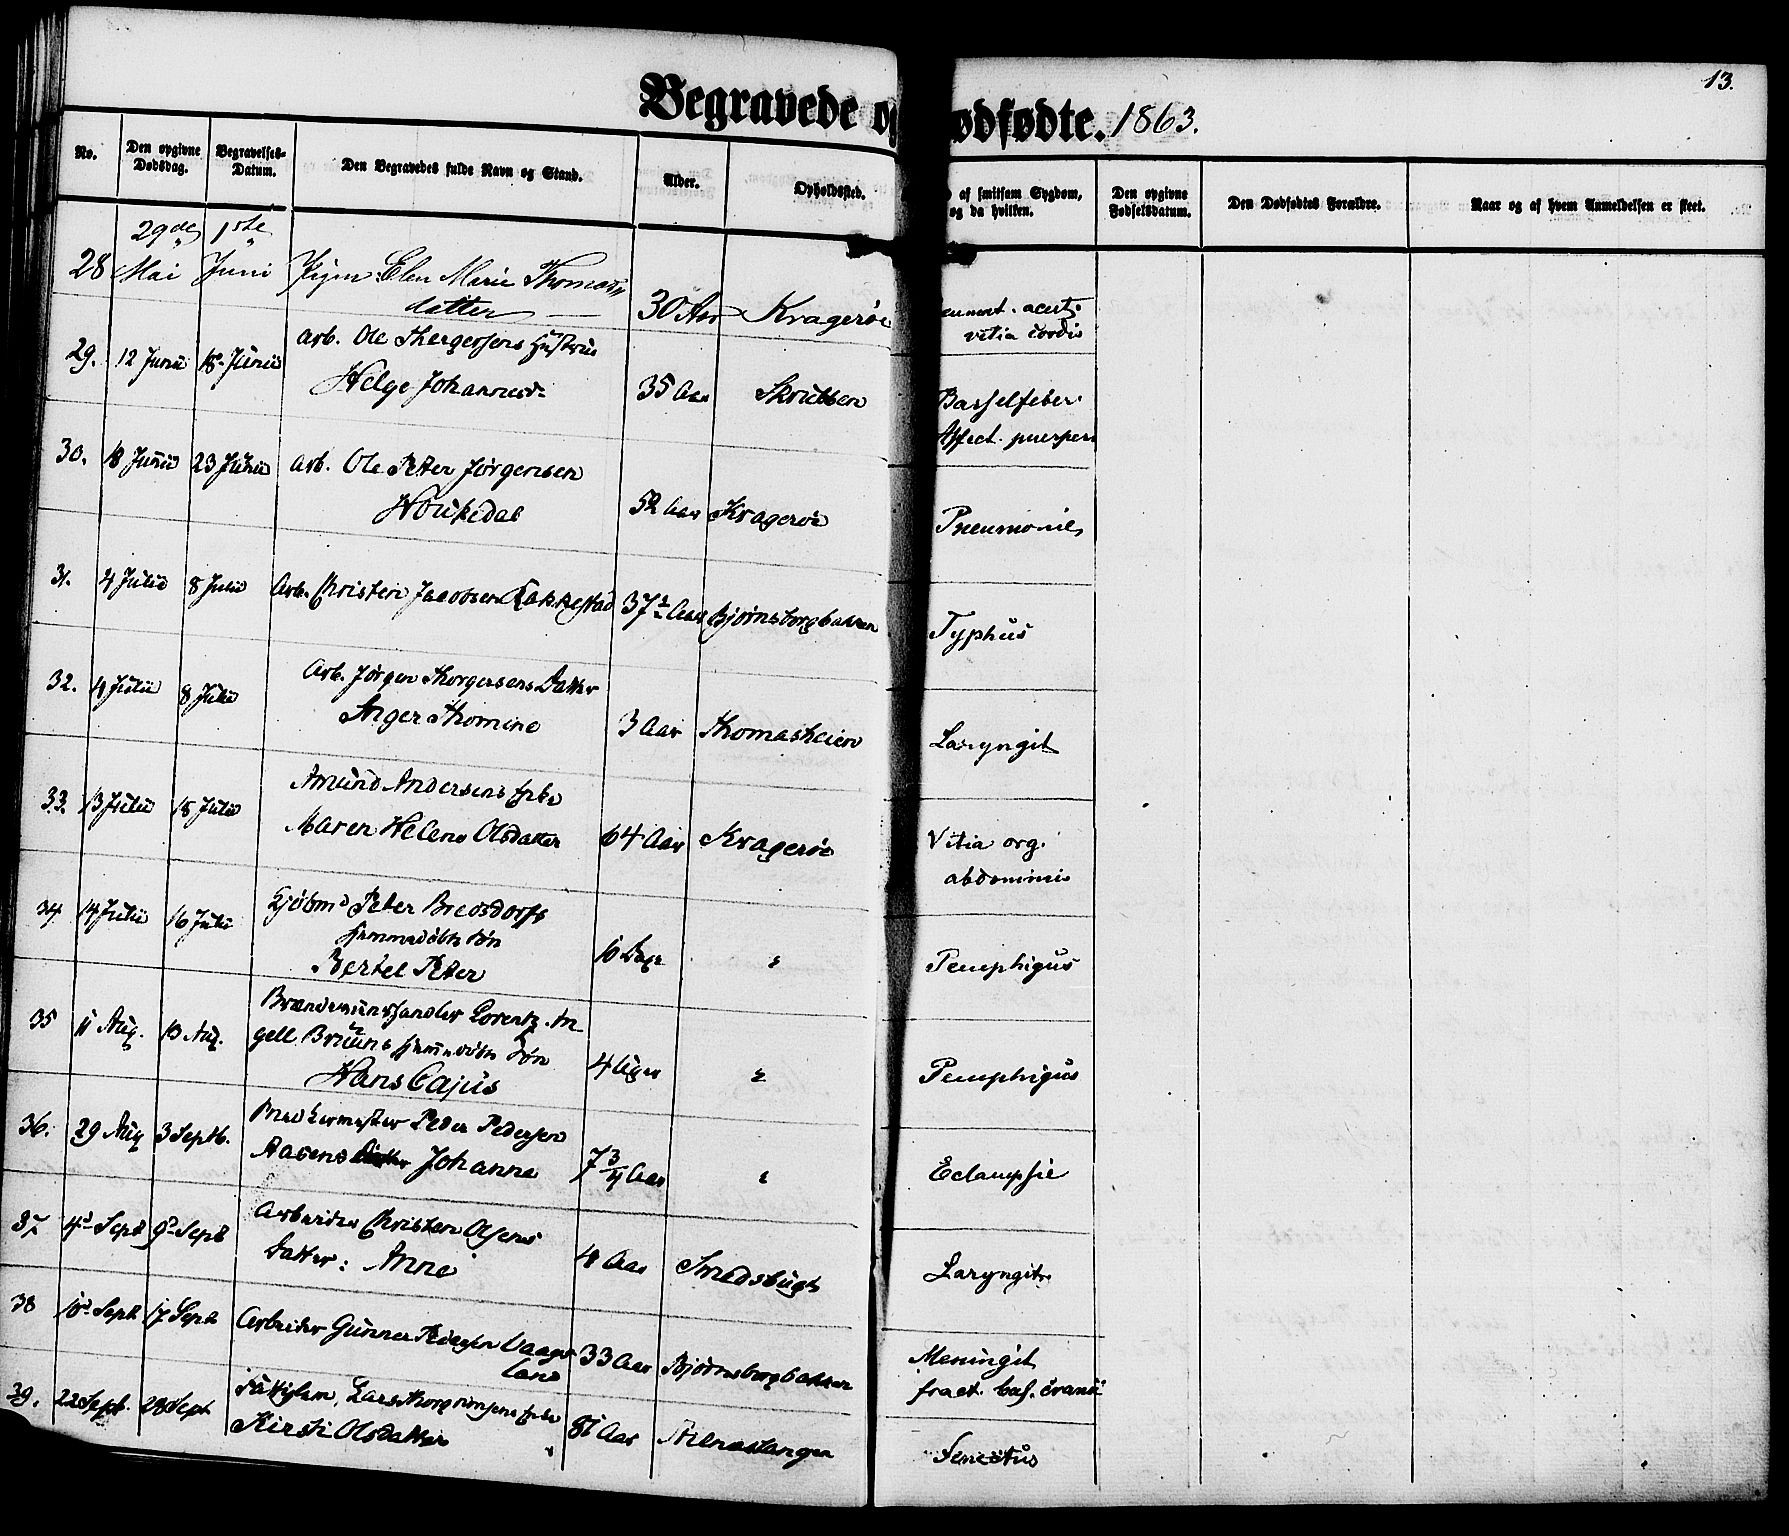 13.
Begravede og Dødfødte. 1863.
No. Den opgivne Dødsdag. Begravelses-Datum. Den Begravedes fulde Navn og Stand. Alder. Opholdssted. af smitsom Sygdom, og da hvilken. Den opgivne Fødselsdatum. Den Dødfødtes Forældre. Naar og af hvem Anmeldelsen er skeet.
29de 1ste
28 Mai Juni Pigen Elen Marie Thomas-
datter 30 Aar Kragerøe acut.
vitia cordis
29. 12 Junii 18 Junii Arb. Ole Thergersens Hustrue
Helge Johannesd. 35 Aar Skrubben Barselfeber.
Affect. puerper
30. 18 Junii 23 Junii Arb. Ole Peter Jørgensen
Houkedal 52 Aar Kragerøe Pneumonie
31. 4 Julii 8 Julii Arb. Christen Jacobsen Rakkestad 37½ Aar Bjørnsborgbakken Typhus
32. 4 Julii 8 Julii Arb. Jørgen Thorgersens Datter
Inger Thomine 3 Aar Thomasheien Laryngit
33. 13 Julii 18 Julii Amund Andersens Enke
Maren Helene Olsdatter 64 Aar Kragerøe Vitia org.
abdominis
34. 14 Julii 16 Julii Kjøbmd Peter Bredsdorffs
hjemmedøbte Søn
Bertel Peter 10 Dage " Pemphigus
35 11 Aug. 13 Aug. Brændeviinshandler Lorentz An
gell Bruuns hjemmedøbte Søn
Hans Cajus 4 Uger " Pemphigus
36. 29 Aug 3 Septb. Peder Pedersen
Aasens Johanne 7¾ Aar " Eclampsie
37 4d Sept 9d Sept Arbeider Christen Olsens
Datter: Anne 4 Aar Smedsbugt Laryngit.
38 10d Sept 17 Sept Arbeider Gunner Pedersen Vaage
land 33 Aar Bjørnsborgbakken Meningit
fract. bas. cranii
39. 22 Sept. 28 Sept Fattiglem, Lars Enke
Kirsti Olsdatter 81 Aar Senectus